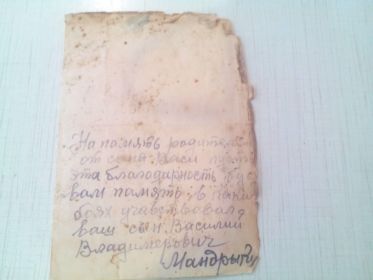 На память родителям
от сына Васи пусть
эта благодарность
вам память в каких
боях учавствовал
ваш сын Василий
Владимерович